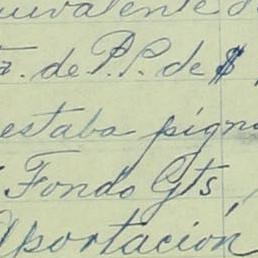 uivalente
de P.P. de $
estaba pigno
Fondo Gts,
Aportación